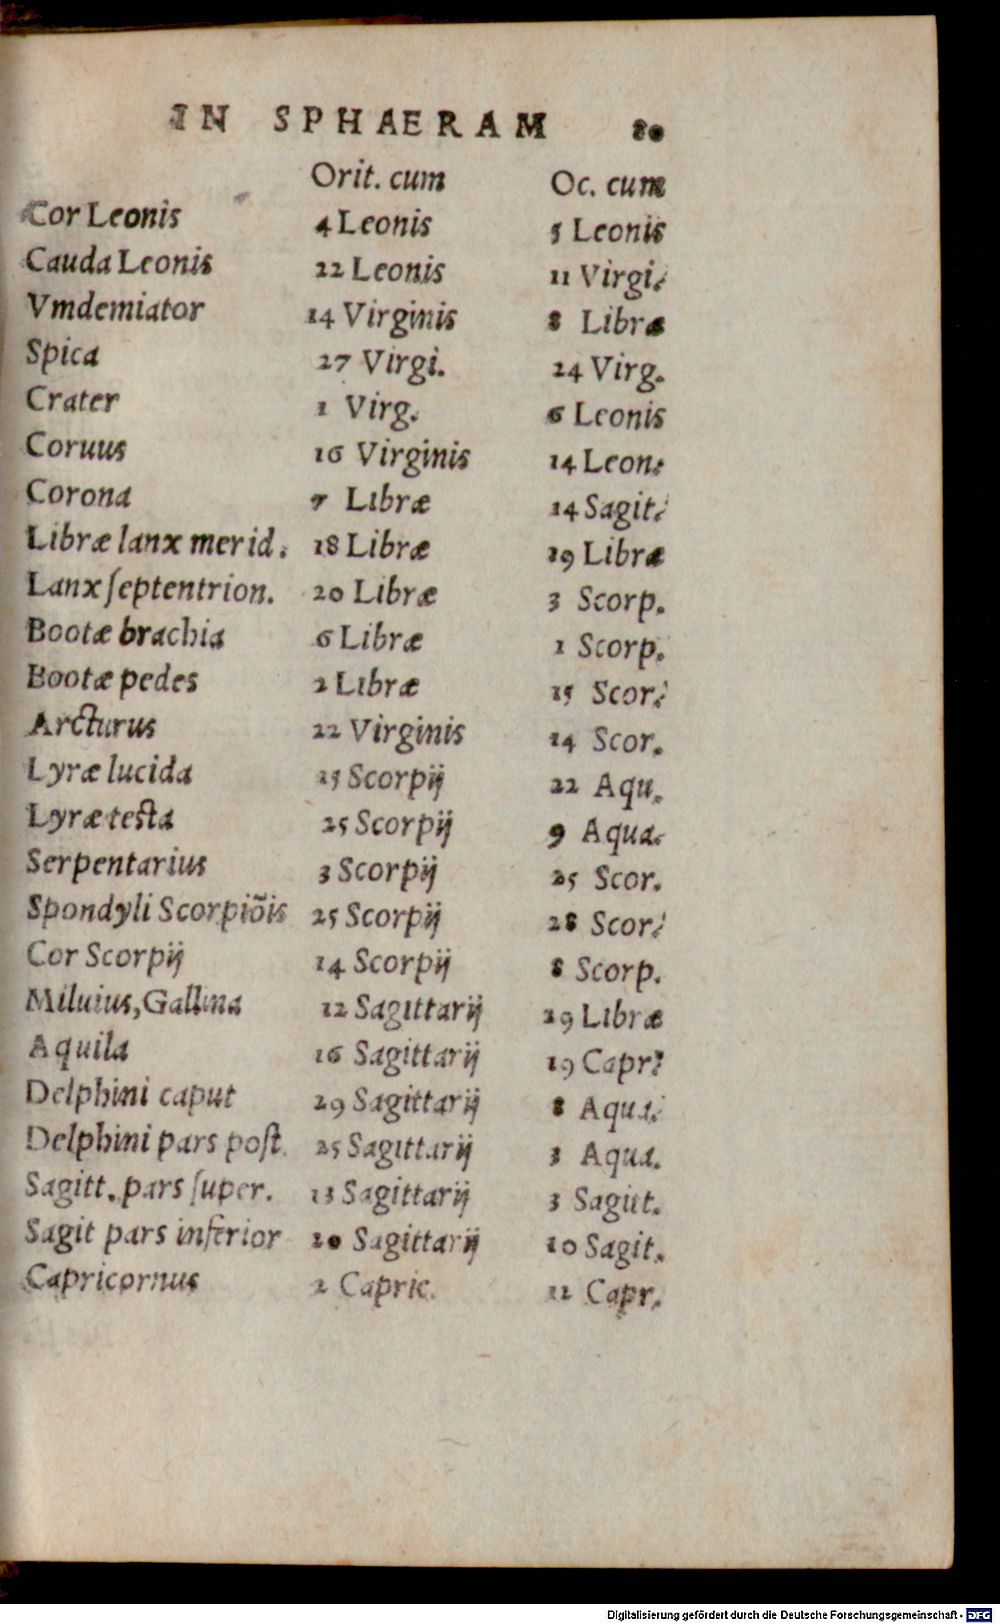 IN SPHAERAM 80
Orit. cum Oc. cum
Cor Leonis 4 Leonis 5 Leonis
Cauda Leonis 22 Leonis 11 Virgi.
Vindemiator 14 Virginis 8 Libræ
Spica 27 Virgi. 24 Virg.
Crater 1 Virg. 6 Leonis
Coruus 16 Virginis 14 Leon.
Corona 7 Libræ 14 Sagit.
Libræ lanx merid. 18 Libræ 19 Libræ
Lanx ſeptentrion. 20 Libræ 3 Scorp.
Bootæ brachia 6 Libræ 1 Scorp.
Bootæ pedes 2 Libræ 15 Scor.
Arcturus 22 Virginis 14 Scor.
Lyræ lucida 15 Scorpij 22 Aqu.
Lyræ testa 25 Scorpij 9 Aqua.
Serpentarius 3 Scorpij 25 Scor.
Spondyli Scorpiõis 25 Scorpij 28 Scor.
Cor Scorpij 14 Scorpij 8 Scorp.
Miluius, Gallina 12 Sagittarij 29 Libræ
Aquila 16 Sagittarij 19 Capr.
Delphini caput 29 Sagittarij 8 Aqua.
Delphini pars poſt. 25 Sagittarij 3 Aqua.
Sagitt. pars ſuper. 13 Sagittarij 3 Sagitt.
Sagit pars inferior 20 Sagittarij 10 Sagit.
Capricornus 2 Capric. 12 Capr.
Digitalisierung gefördert durch die Deutsche Forschungsgemeinschaft - DFG